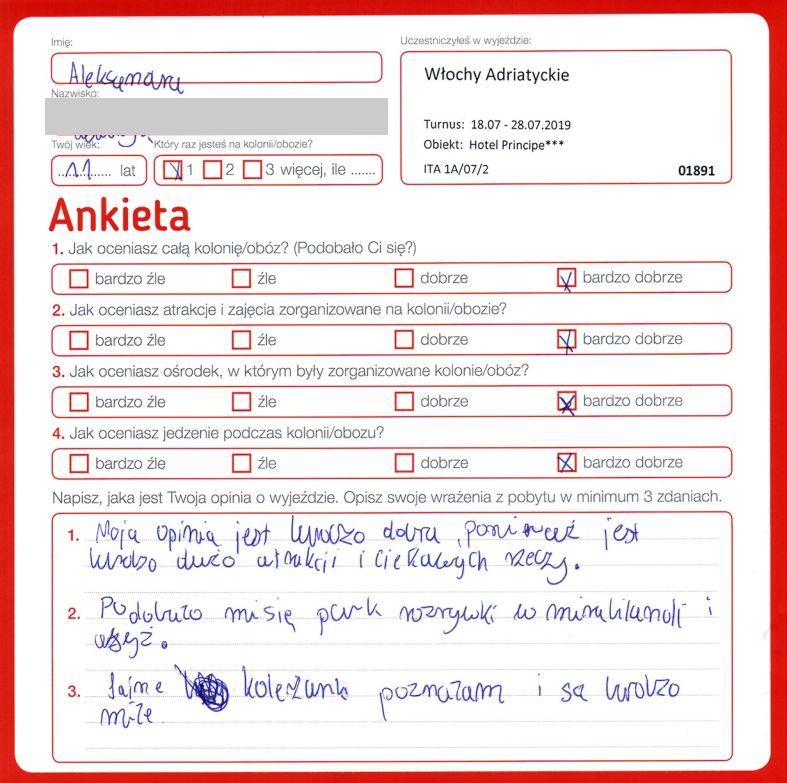 Imię:
Uczestniczyłeś w wyjeździe:
Aleksandra
Włochy Adriatyckie
Nazwisko:
Turnus: 18.07 - 28.07.2019
Obiekt: Hotel Principe***
ITA 1A/07/2
01891
Twój wiek:
Który raz jesteś na kolonii/obozie?
11 lat
1 2 3 więcej, ile .......
Ankieta
1. Jak oceniasz całą kolonię/obóz? (Podobało Ci się?)
bardzo źle źle dobrze bardzo dobrze
2. Jak oceniasz atrakcje i zajęcia zorganizowane na kolonii/obozie?
bardzo źle źle dobrze bardzo dobrze
3. Jak oceniasz ośrodek, w którym były zorganizowane kolonie/obóz?
bardzo źle źle dobrze bardzo dobrze
4. Jak oceniasz jedzenie podczas kolonii/obozu?
bardzo źle źle dobrze bardzo dobrze
Napisz, jaka jest Twoja opinia o wyjeździe. Opisz swoje wrażenia z pobytu w minimum 3 zdaniach.
1. Moja opinia jest bardzo dobra, ponieważ jest
bardzo dużo atrakcji i ciekawych rzeczy.
2. Podobało mi się park rozrywki w mirabilandi i
3. Fajne koleżank poznałam i są bardzo
miłe